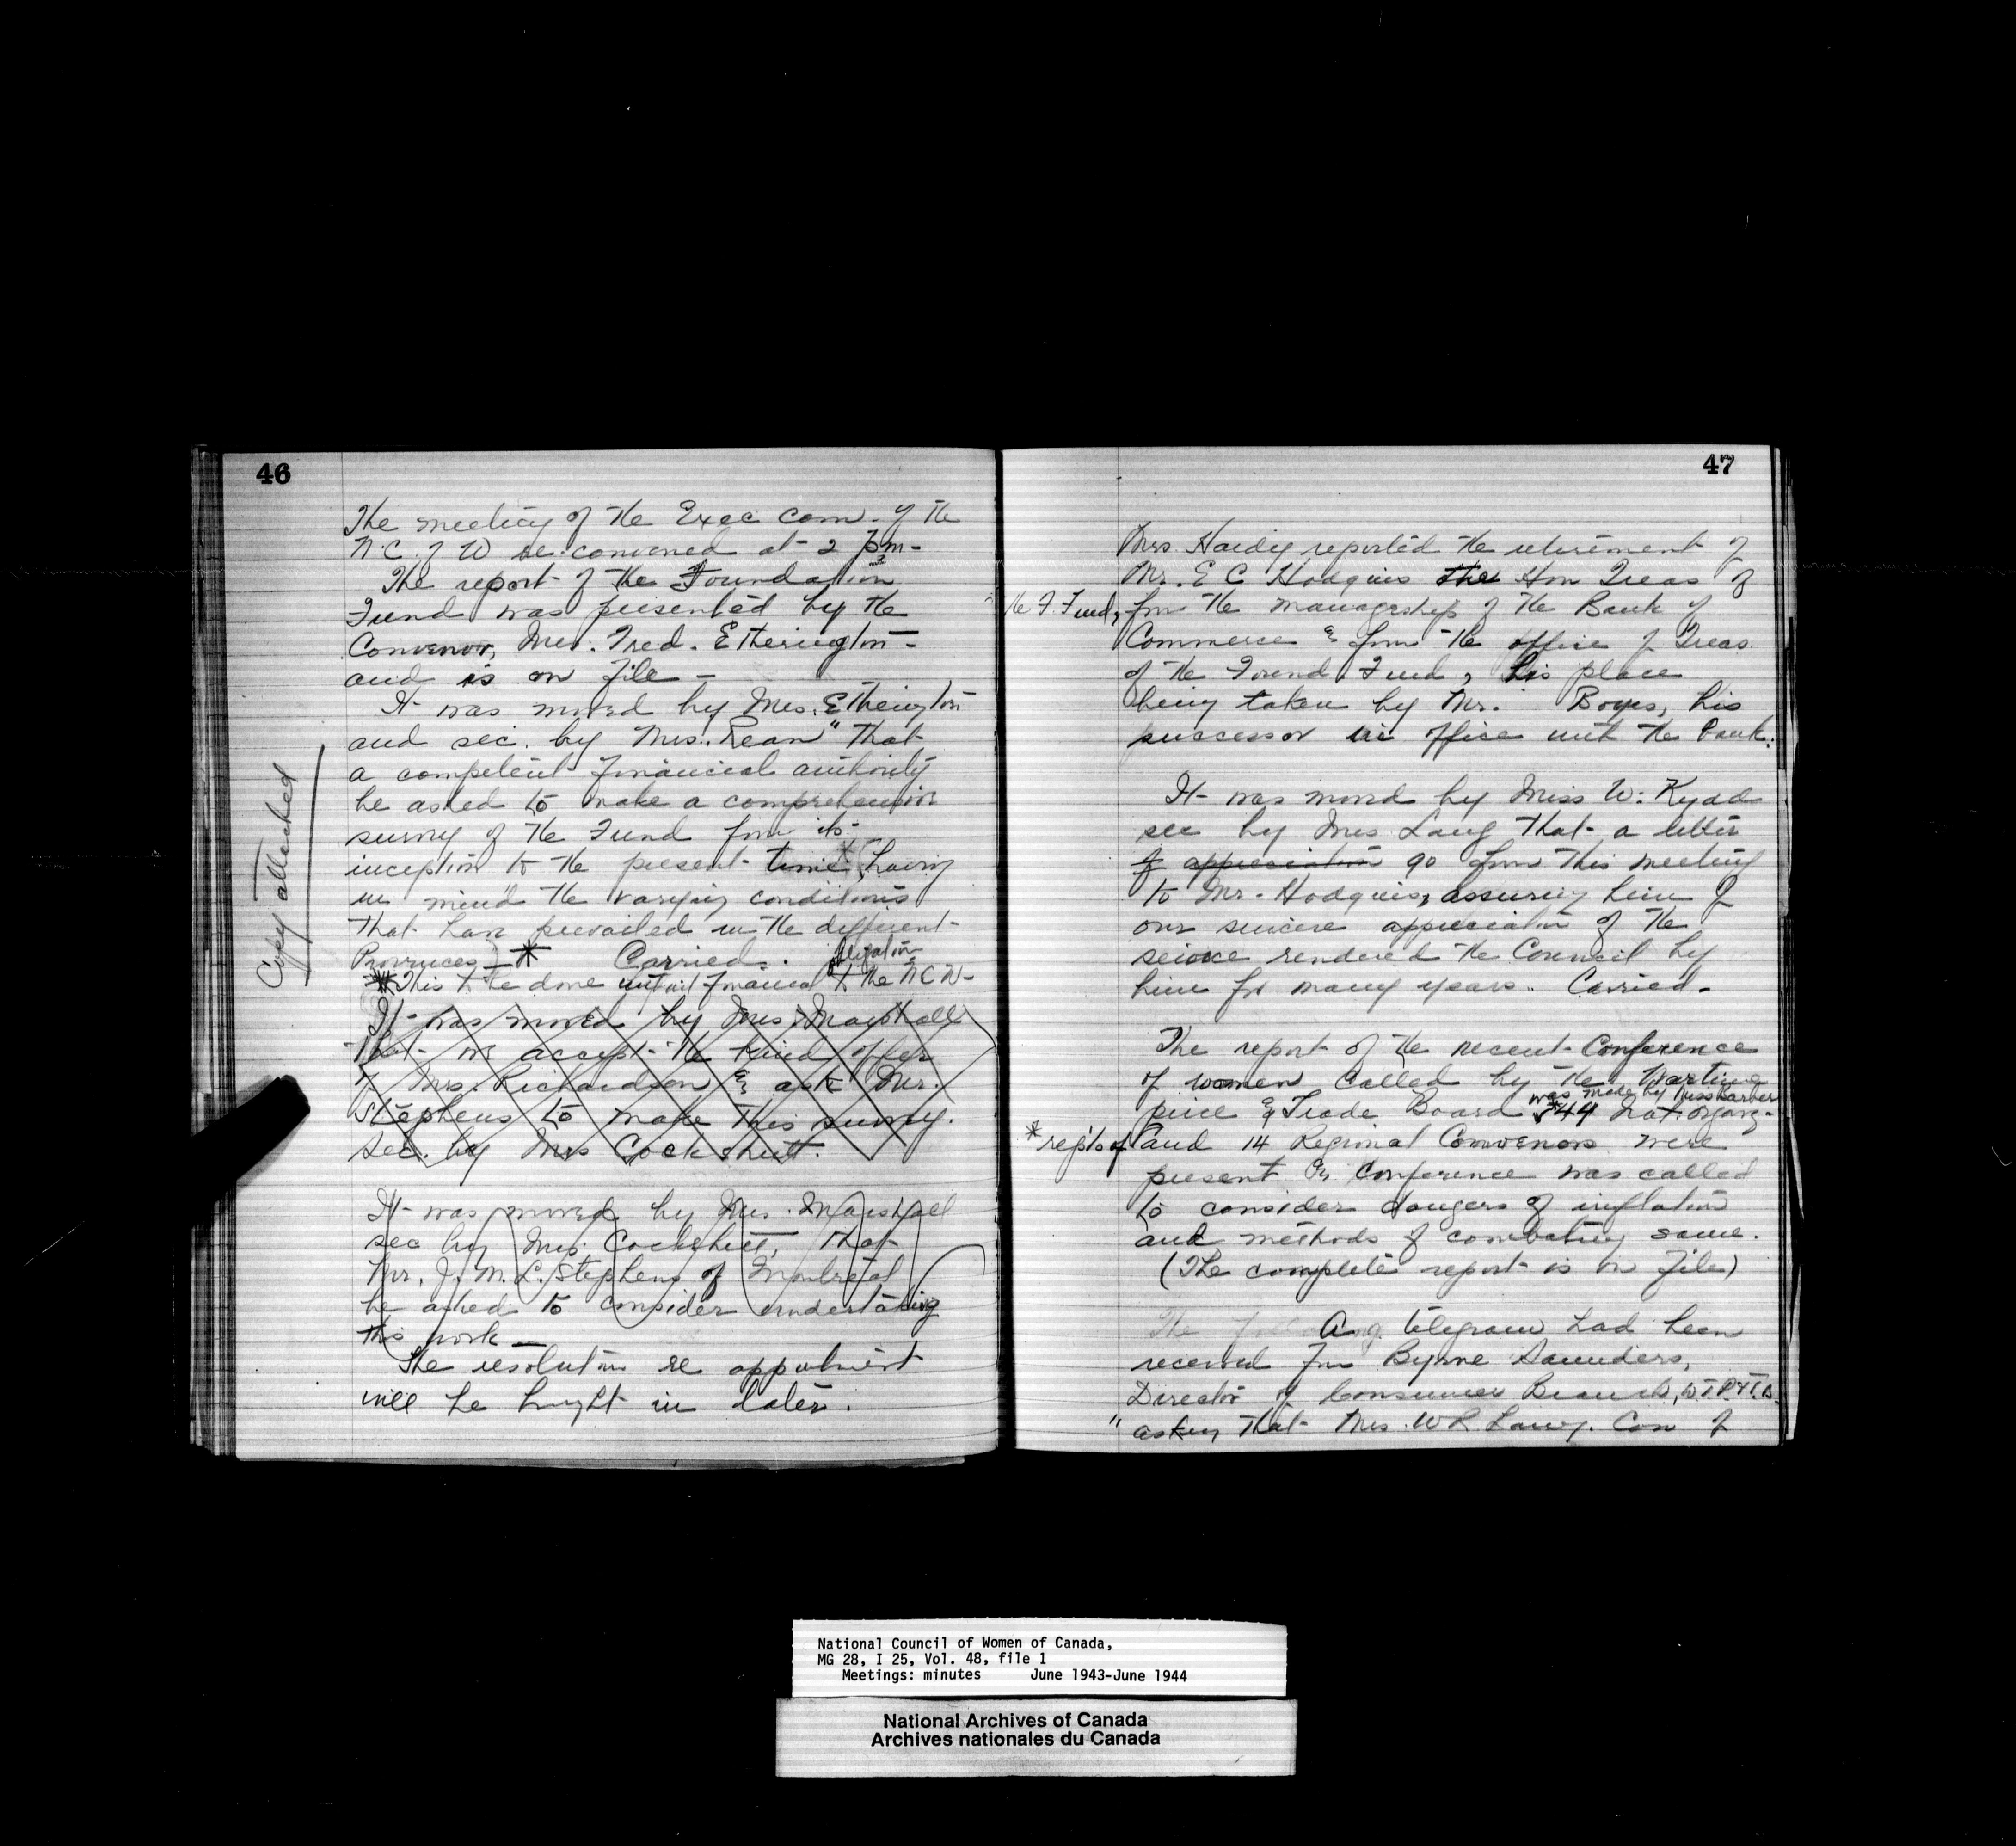 46
The meeting of the Exec Com. of the
N.C. of W re-convened at 2 p.m-
The report of the Foundation
Fund was presented by the
Convenor, Mrs. Fred. Etherington-
and is on file -
It was moved by Mrs. Etherington
and sec. by Mrs. "that
a competent financial authority
be asked to make a comprehensive
survey of the Fund from its
inception to the present time, having
in mind the varying conditions
that have prevailed in the different
Provinces - * Carried.
* This to be done without financial obligation to the N C W-
Copy attached
It was moved by Mrs Marshall
that we accept the kind offer
of Mrs. Richardson & ask Mr.
Stephens to make this survey.
Sec. by Mrs Cockshutt.
It was moved by Mrs. Marshall
sec by Mrs Cockshutt, that
Mr. J. M. L. Stephens of Montreal
be asked to consider undertaking
this work -
The resolution re appointment
will be brought in later.
47
Mrs. Hardy reported the retirement of
Mr. E C Hodgins the Hon Treas of
the F. Fund, from the managership of the Bank of
Commerce & from the office of Treas.
of the Found. Fund, his place
being taken by Mr. Boyes, his
successor in office with the bank.
It was moved by Miss W. Kydd
sec by Mrs Lang that a letter
of appreciation go from this meeting
to Mr. Hodgins, assuring him of
our sincere appreciation of the
service rendered the Council by
him for many years. Carried.
The report of the recent Conference
of women called by the Wartime
price & Trade Board was made by Miss Barber * 44 Nat. organz-
* rep'ts of and 14 Regional Convenors were
present & Conference was called
to consider dangers of inflation
and methods of combating same.
(The complete report is on file)
The following A telegram had been
received from Byrne Saunders,
Director of Consumer Branch, W.T.P.&T.B.
" asking that Mrs. W R Lang. Con of
National Council of Women of Canada,
MG 28, I 25, Vol. 48, file 1
Meetings: minutes June 1943-June 1944
National Archives of Canada
Archives nationales du Canada